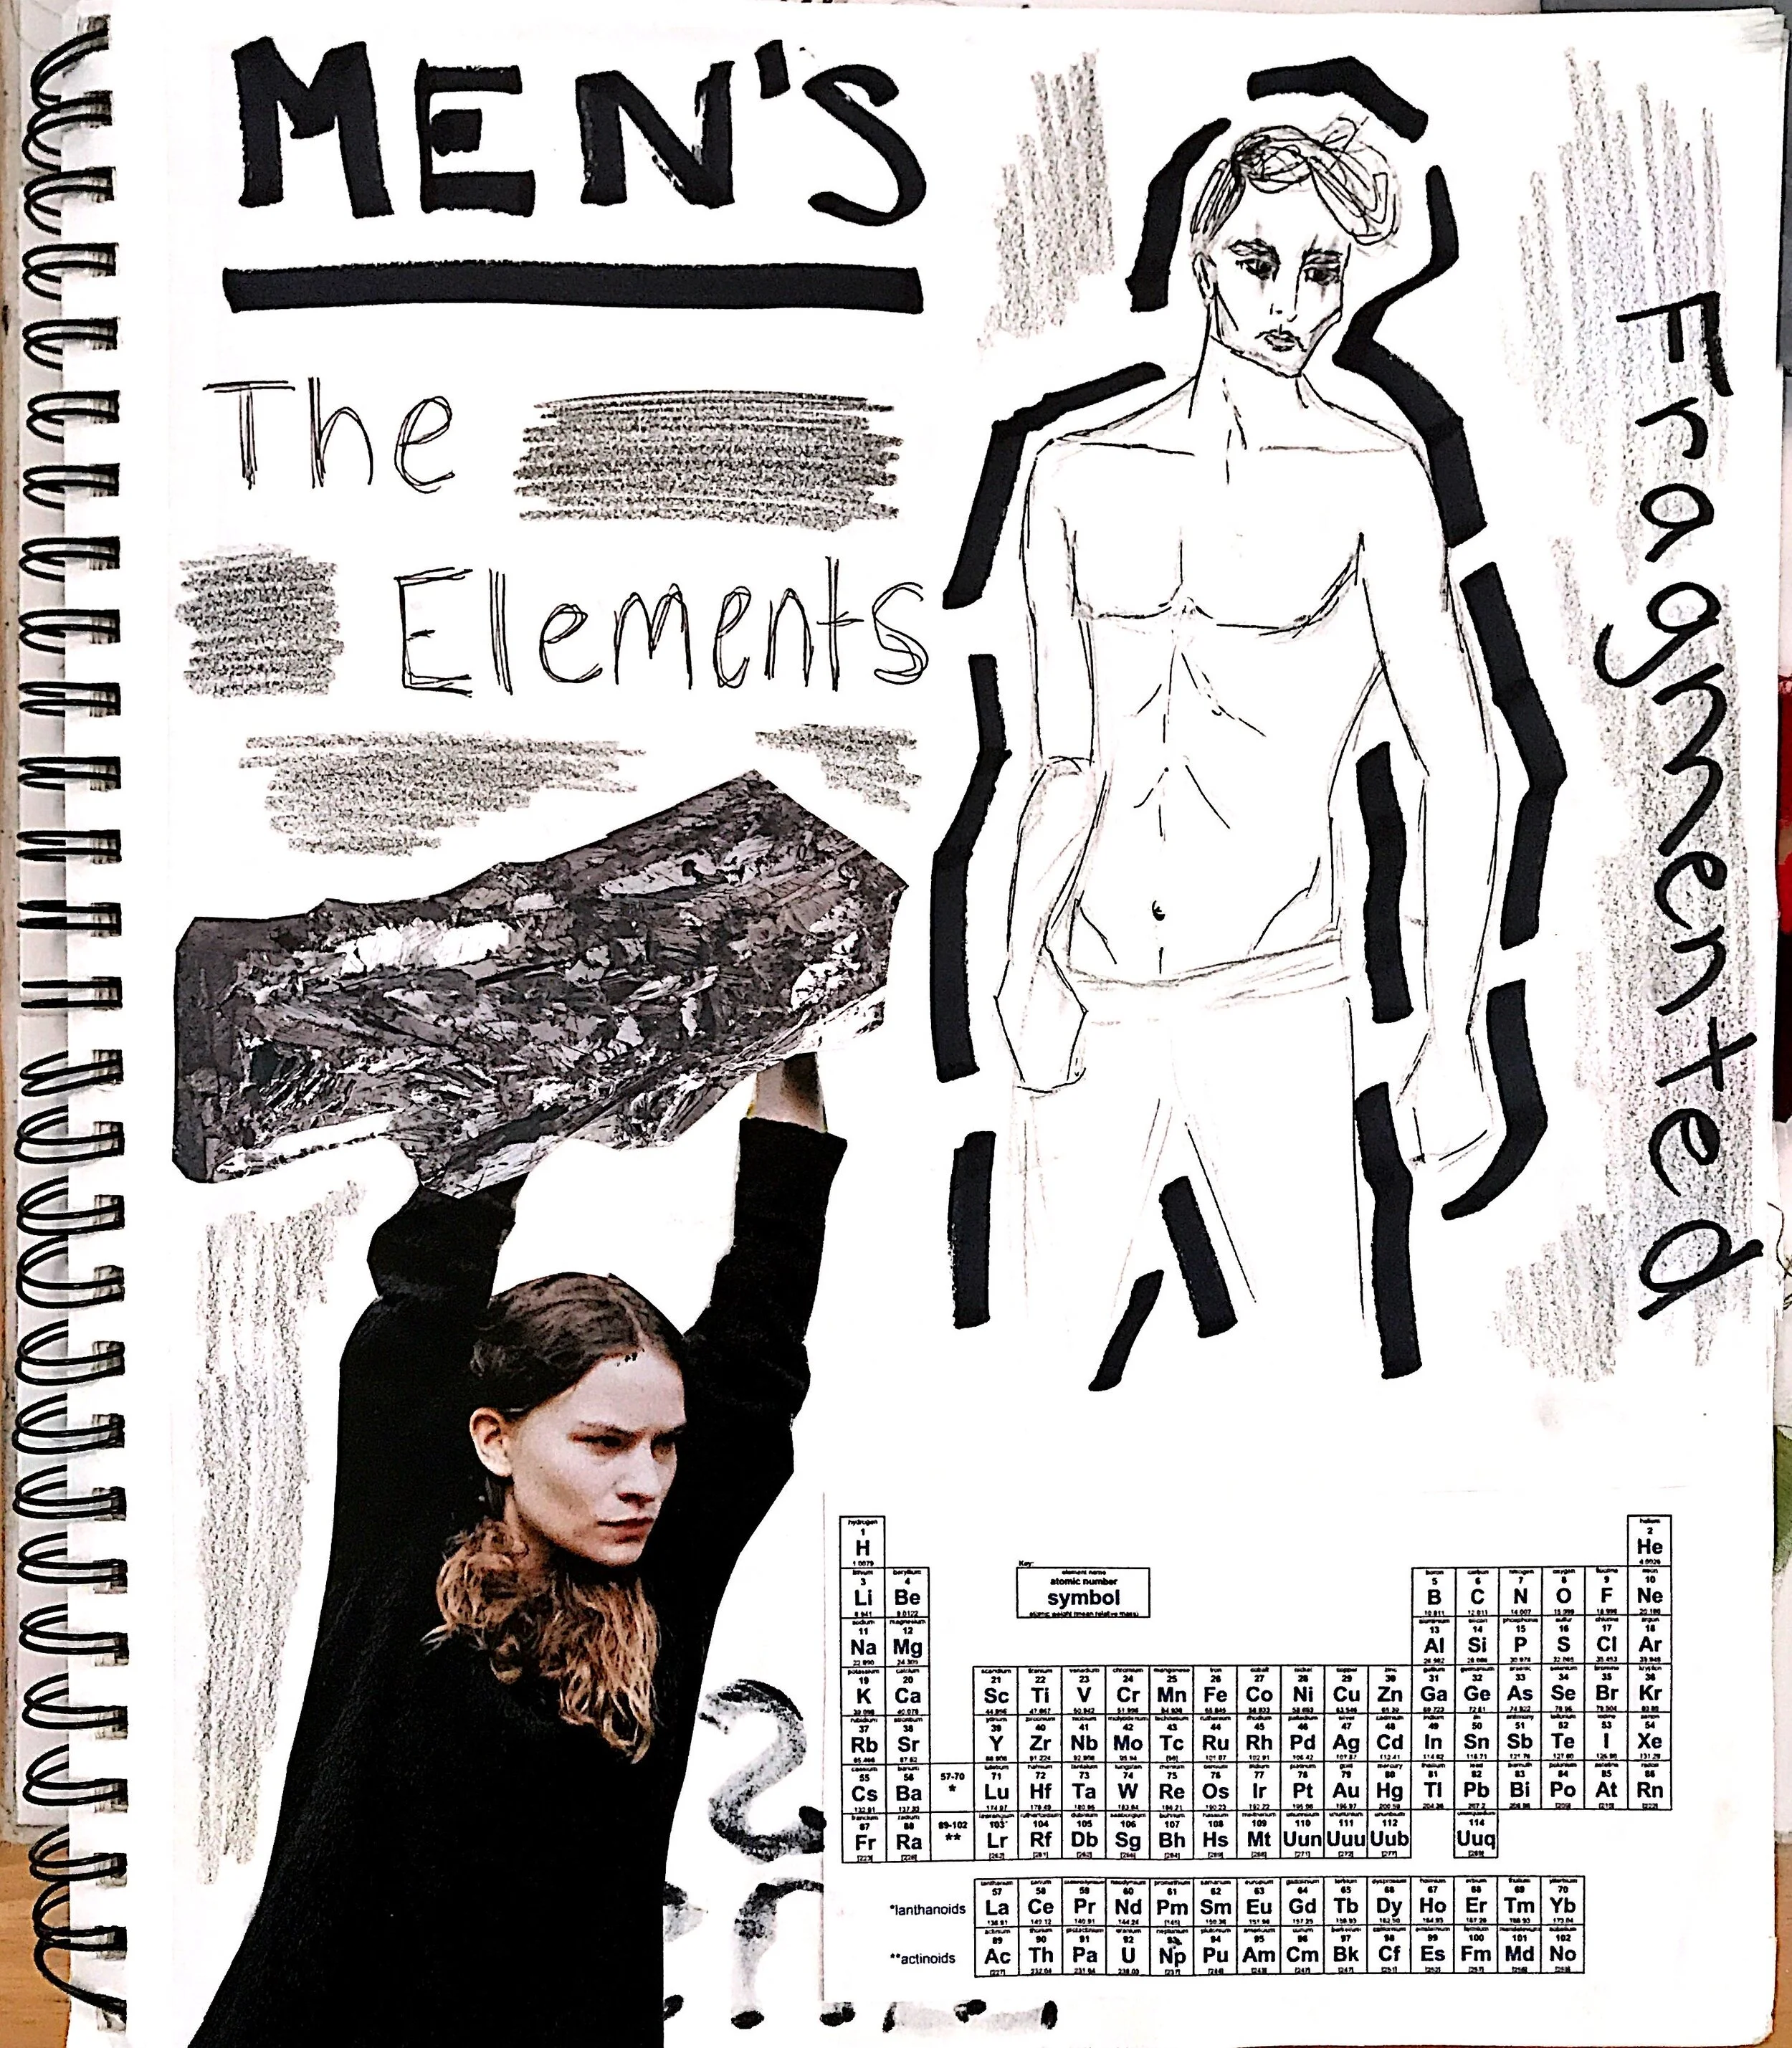 MEN'S
The
Elements
Fragmented
hydrogen helium
1 2
H He
1.0079 4.0026
Key:
element name
atomic number
symbol
atomic weight (mean relative mass)
lithium beryllium boron carbon nitrogen oxygen fluorine neon
3 4 5 6 7 8 9 10
Li Be B C N O F Ne
sodium magnesium aluminium silicon phosphorus sulfur chlorine argon
11 12 13 14 15 16 17 18
Na Mg Al Si P S Cl Ar
potassium calcium scandium titanium vanadium chromium manganese iron cobalt nickel copper zinc gallium germanium arsenic selenium bromine krypton
19 20 21 22 23 24 25 26 27 28 29 30 31 32 33 34 35 36
K Ca Sc Ti V Cr Mn Fe Co Ni Cu Zn Ga Ge As Se Br Kr
37 38 39 40 41 42 43 44 45 46 47 48 49 50 51 52 53 54
Rb Sr Y Zr Nb Mo Tc Ru Rh Pd Ag Cd In Sn Sb Te I Xe
55 56 57-70 71 72 73 74 75 76 77 78 79 80 81 82 83 84 85 86
Cs Ba * Lu Hf Ta W Re Os Ir Pt Au Hg Tl Pb Bi Po At Rn
87 88 89-102 103 104 105 106 107 108 109 110 111 112 114
Fr Ra ** Lr Rf Db Sg Bh Hs Mt Uun Uuu Uub Uuq
57 58 59 60 61 62 63 64 65 66 67 68 69 70
*lanthanoids La Ce Pr Nd Pm Sm Eu Gd Tb Dy Ho Er Tm Yb
89 90 91 92 93 94 95 96 97 98 99 100 101 102
**actinoids Ac Th Pa U Np Pu Am Cm Bk Cf Es Fm Md No